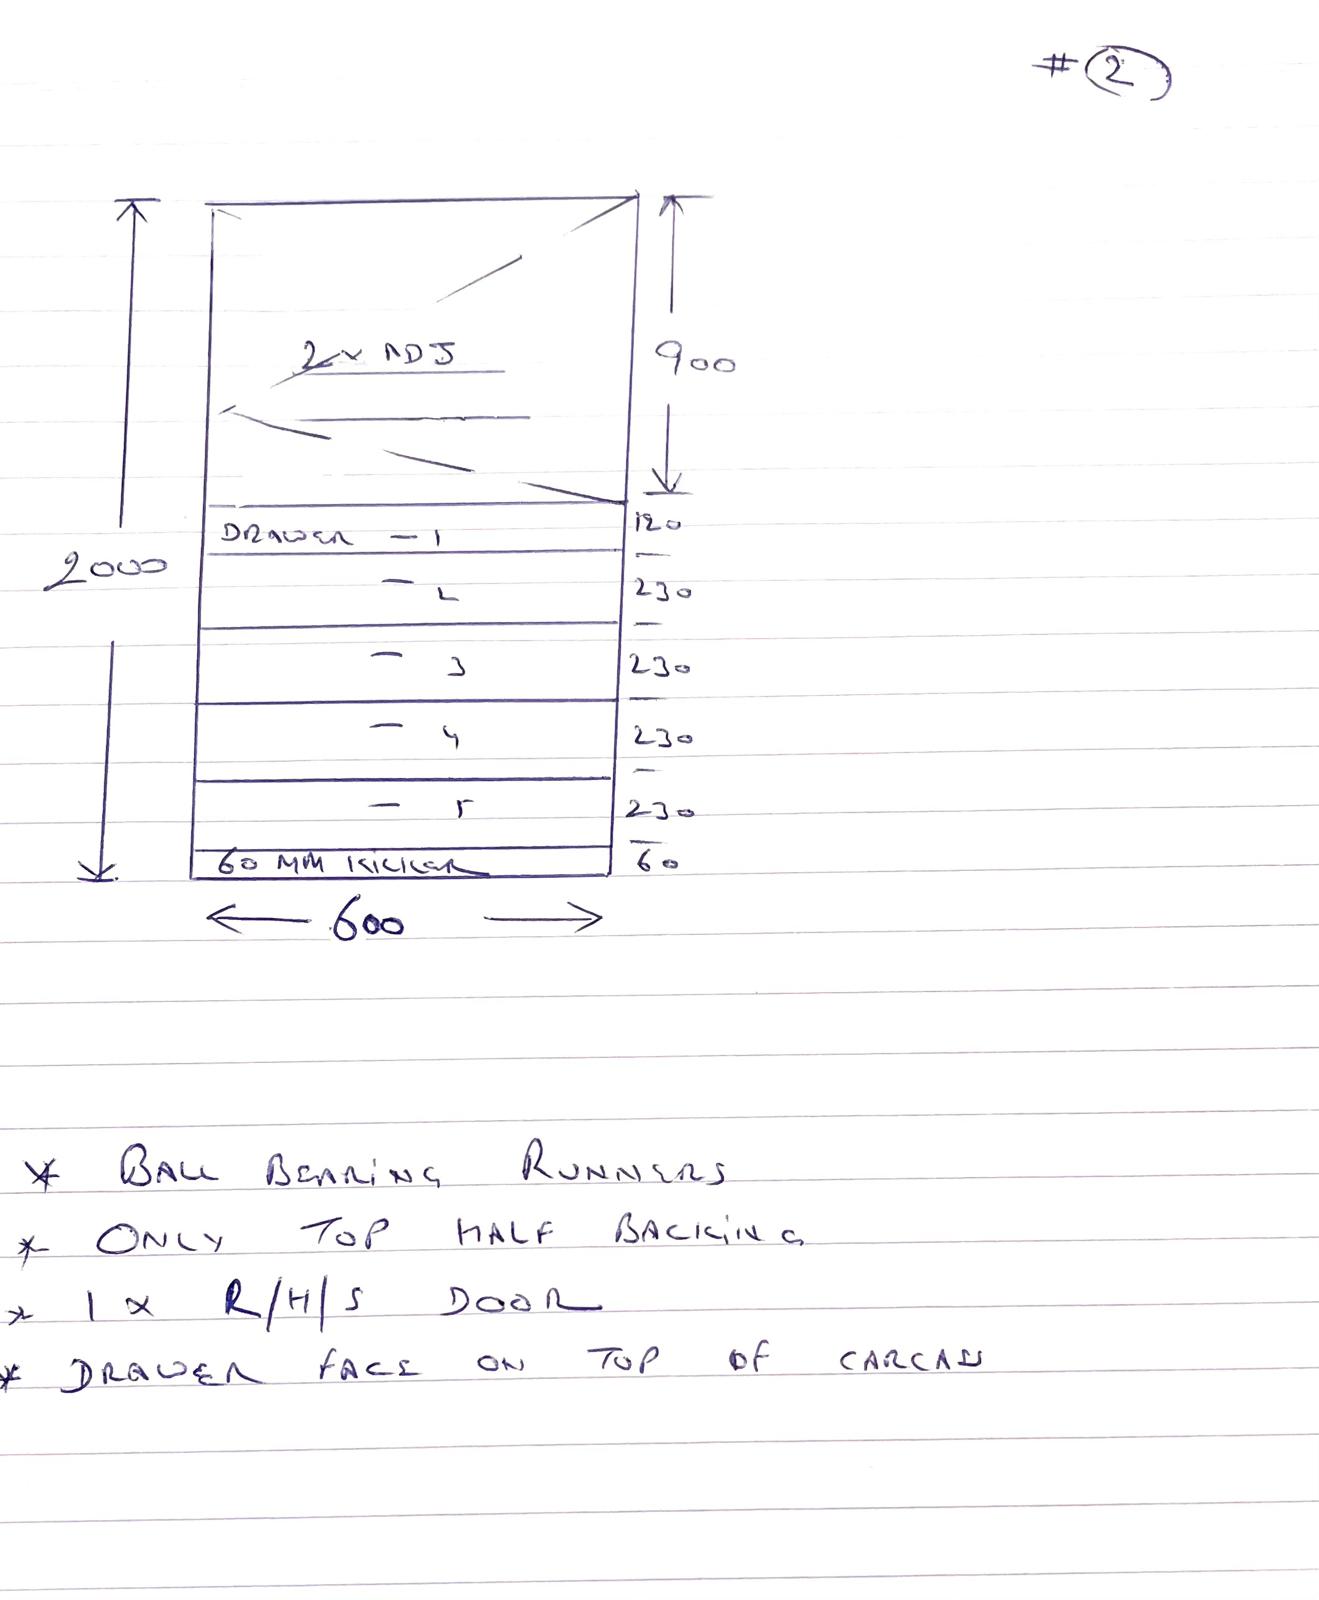 # 2
2 x ADJ
900
DRAWER - 1
120
2000
- 2
230
- 3
230
- 4
230
- 5
230
60 MM KICKER
60
600
* BALL BEARING RUNNERS
* ONLY TOP HALF BACKING
* 1 x R/H/S DOOR
* DRAWER FACE ON TOP OF CARCASS